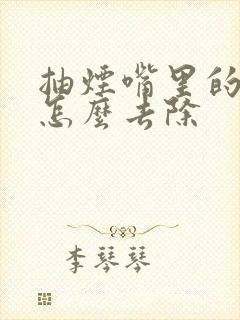 抽煙嘴里的
怎麼去除
李琴琴